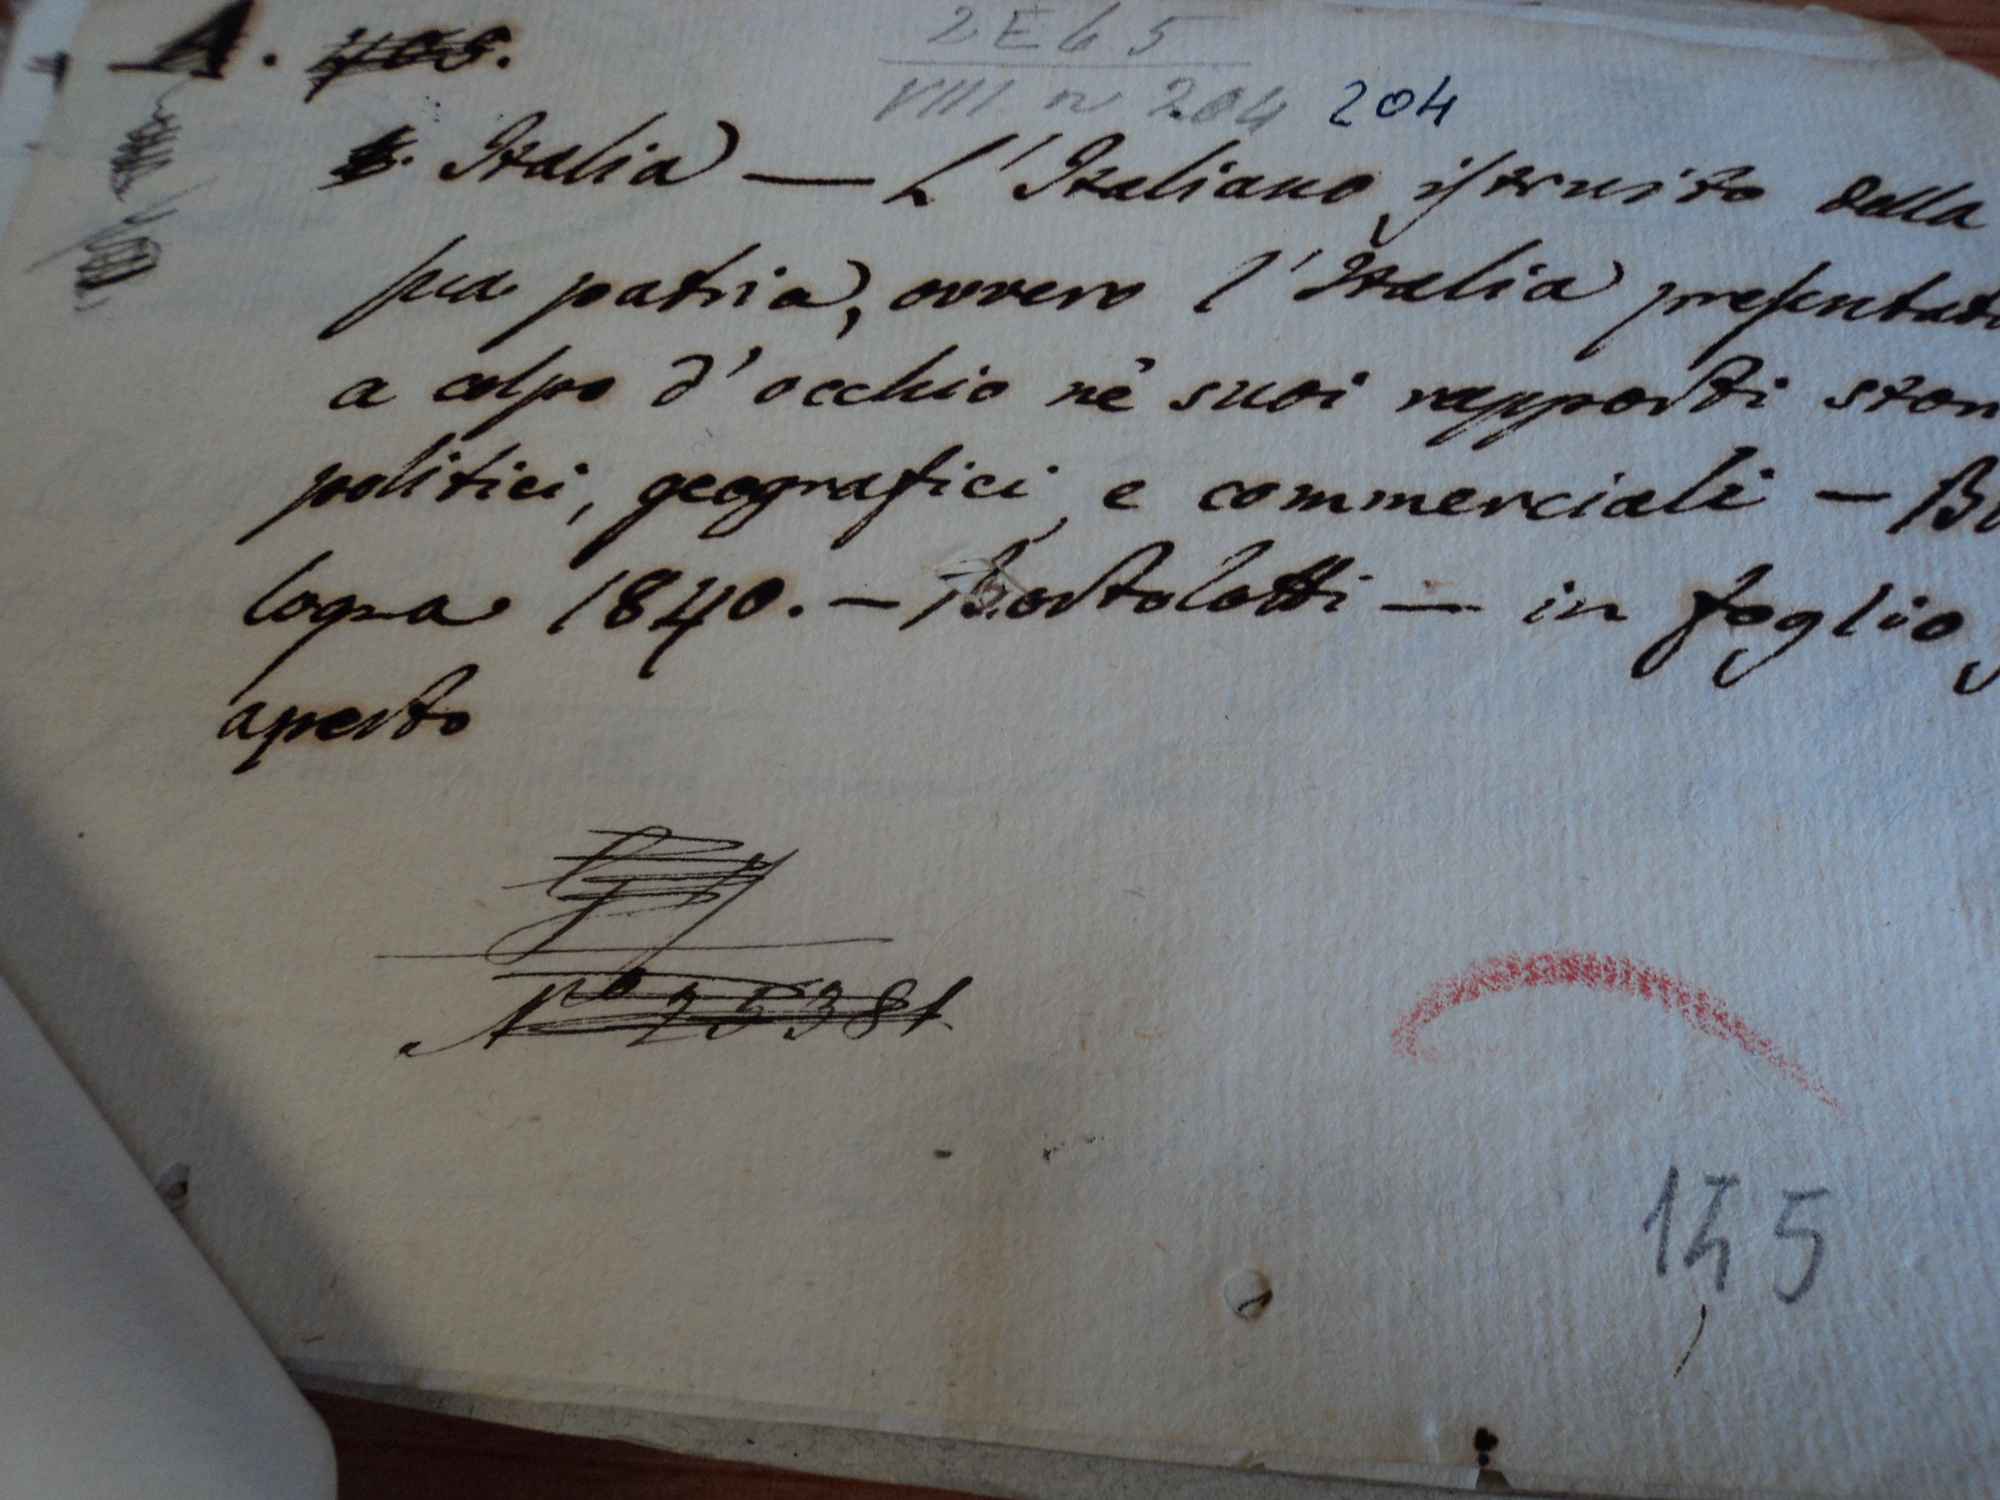 A.
2E65
VIII n 204 204
Italia — L'Italiano istruito dalla
sua patria, ovvero l'Italia presentat
a colpo d'occhio ne' suoi rapporti stor
politici, geografici, e commerciali — Bo
logna 1840. — Bortolotti — in foglio,
aperto
No 25381
145